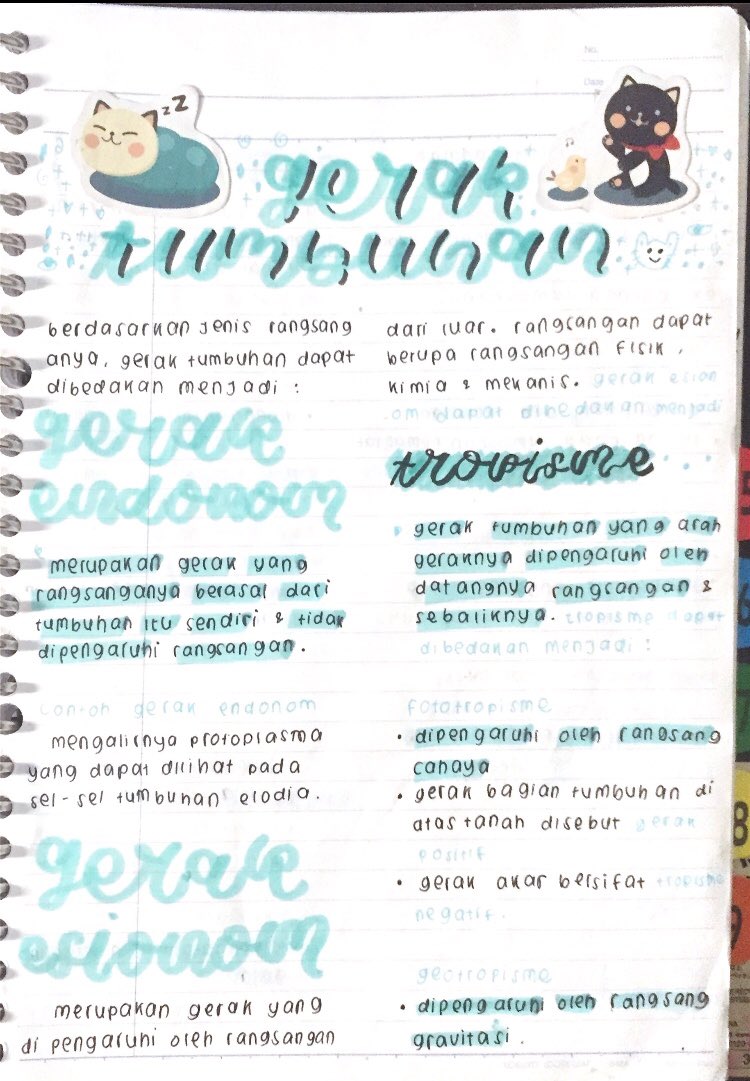 No.
Date
zzZ
gerak
tumbuhan
berdasarkan jenis rangsang
anya, gerak tumbuhan dapat
dibedakan menjadi :
gerak
endonom
merupakan gerak yang
rangsanganya berasal dari
tumbuhan itu sendiri & tidak
dipengaruhi rangsangan.
contoh gerak endonom
mengalirnya protoplasma
yang dapat dilihat pada
sel-sel tumbuhan elodia.
gerak
esionom
merupakan gerak yang
di pengaruhi oleh rangsangan
dari luar. rangsangan dapat
berupa rangsangan fisik,
kimia & mekanis. gerak esion
om dapat dibedakan menjadi
tropisme
gerak tumbuhan yang arah
geraknya dipengaruhi oleh
datangnya rangsangan &
sebaliknya. tropisme dapat
dibedakan menjadi :
fototropisme
• dipengaruhi oleh rangsang
cahaya
• gerak bagian tumbuhan di
atas tanah disebut gerak
positif
• gerak akar bersifat tropisme
negatif.
geotropisme
• dipengaruhi oleh rangsang
gravitasi.
8